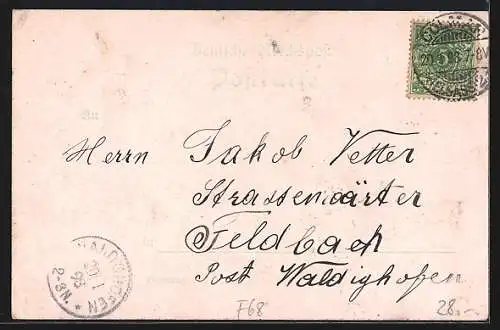 Deutsche Reichspost
Postkarte
An
Herrn Jakob Vetter
Strassenwärter
Feldbach
Post Waldighofen
WALDIGHOFEN
20 1
98
2-3N.
5
F68
28.-